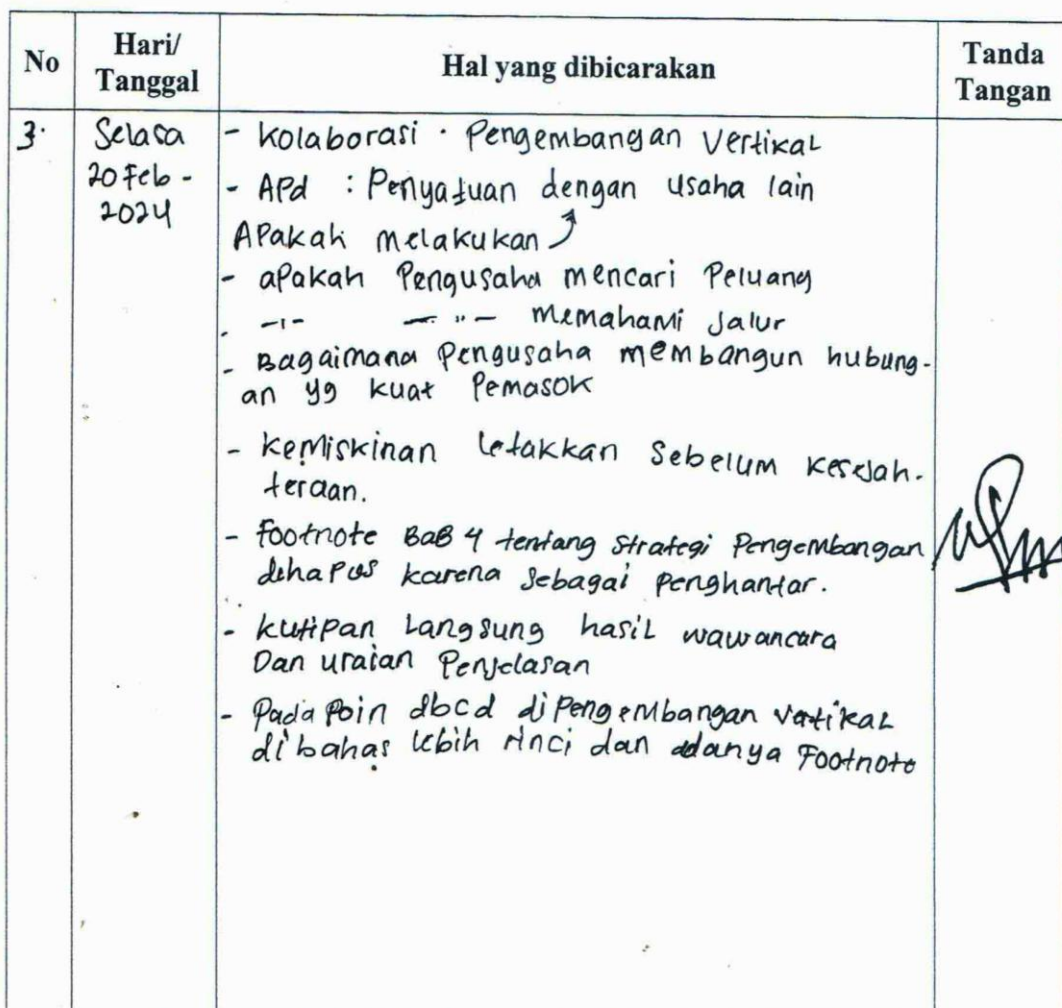 No Hari/ Tanggal Hal yang dibicarakan Tanda Tangan
3. Selasa
20 Feb -
2024
- Kolaborasi . Pengembangan Vertikal
- APd : Penyatuan dengan usaha lain
APakah melakukan
- aPakah Pengusaha mencari Peluang
- -"- -"- memahami Jalur
- Bagaimana Pengusaha membangun hubung-
an yg kuat Pemasok
- kemiskinan letakkan sebelum kesejah-
teraan.
- Footnote BaB 4 tentang strategi Pengembangan
dihapus karena sebagai penghantar.
- kutipan Langsung hasil wawancara
Dan uraian Penjelasan
- Pada Poin abcd di Pengembangan vertikal
di bahas lebih rinci dan adanya Footnote